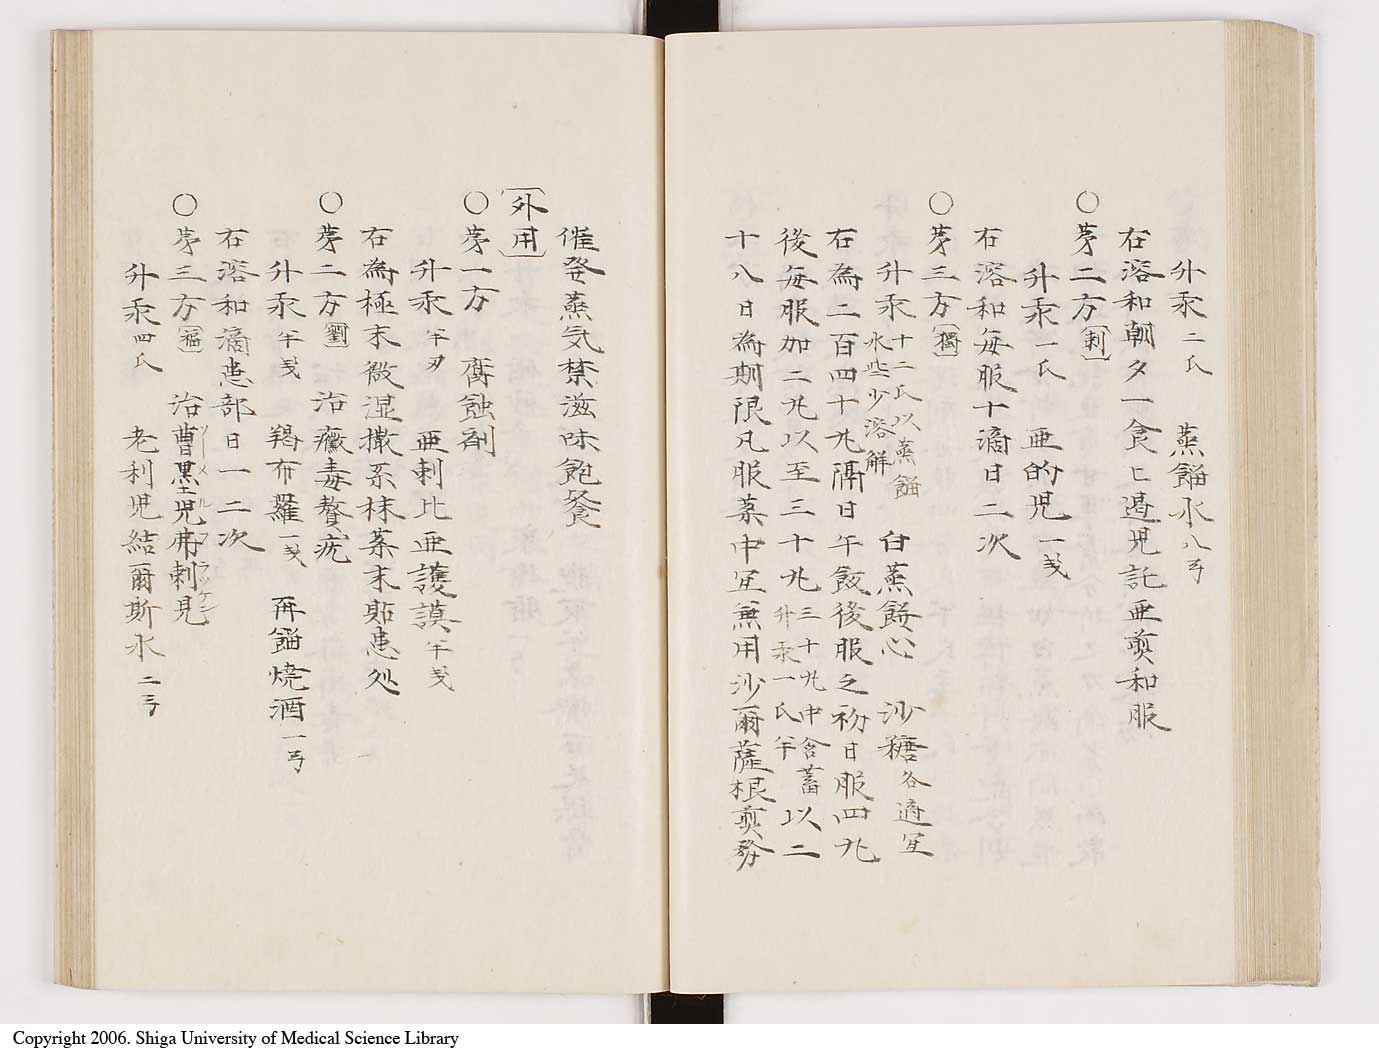 升汞二氏　蒸餾水八弓
右溶和朝夕一食匕遏児託亜煎和服
○第二方〔刺〕
升汞一氏　亜的児一戔
右溶和毎服十滴日二次
○第三方〔獨〕
升汞十二氏以蒸餾水些少溶解　白蒸餅心　沙糖各適宜
右為二百四十丸隔日午飯後服之初日服四丸
後毎服加二丸以至三十丸三十丸中含蓄升汞一氏半以二
十八日為期限凡服薬中宜兼用沙爾薩根煎務
催発蒸気禁滋味飽餐
〔外用〕
○第一方　腐蝕剤
升汞半刃　亜剌比亜護謨半戔
右為極末微湿撒糸抹薬末貼患処
○第二方〔劉〕治黴毒贅疣
升汞半戔　羯布羅一戔　再餾焼酒一弓
右溶和滴患部日一二次
○第三方〔福〕　治曹墨児弗剌見ソーメルフラッケン
升汞四氏　老利児結爾斯水二弓
Copyright 2006. Shiga University of Medical Science Library